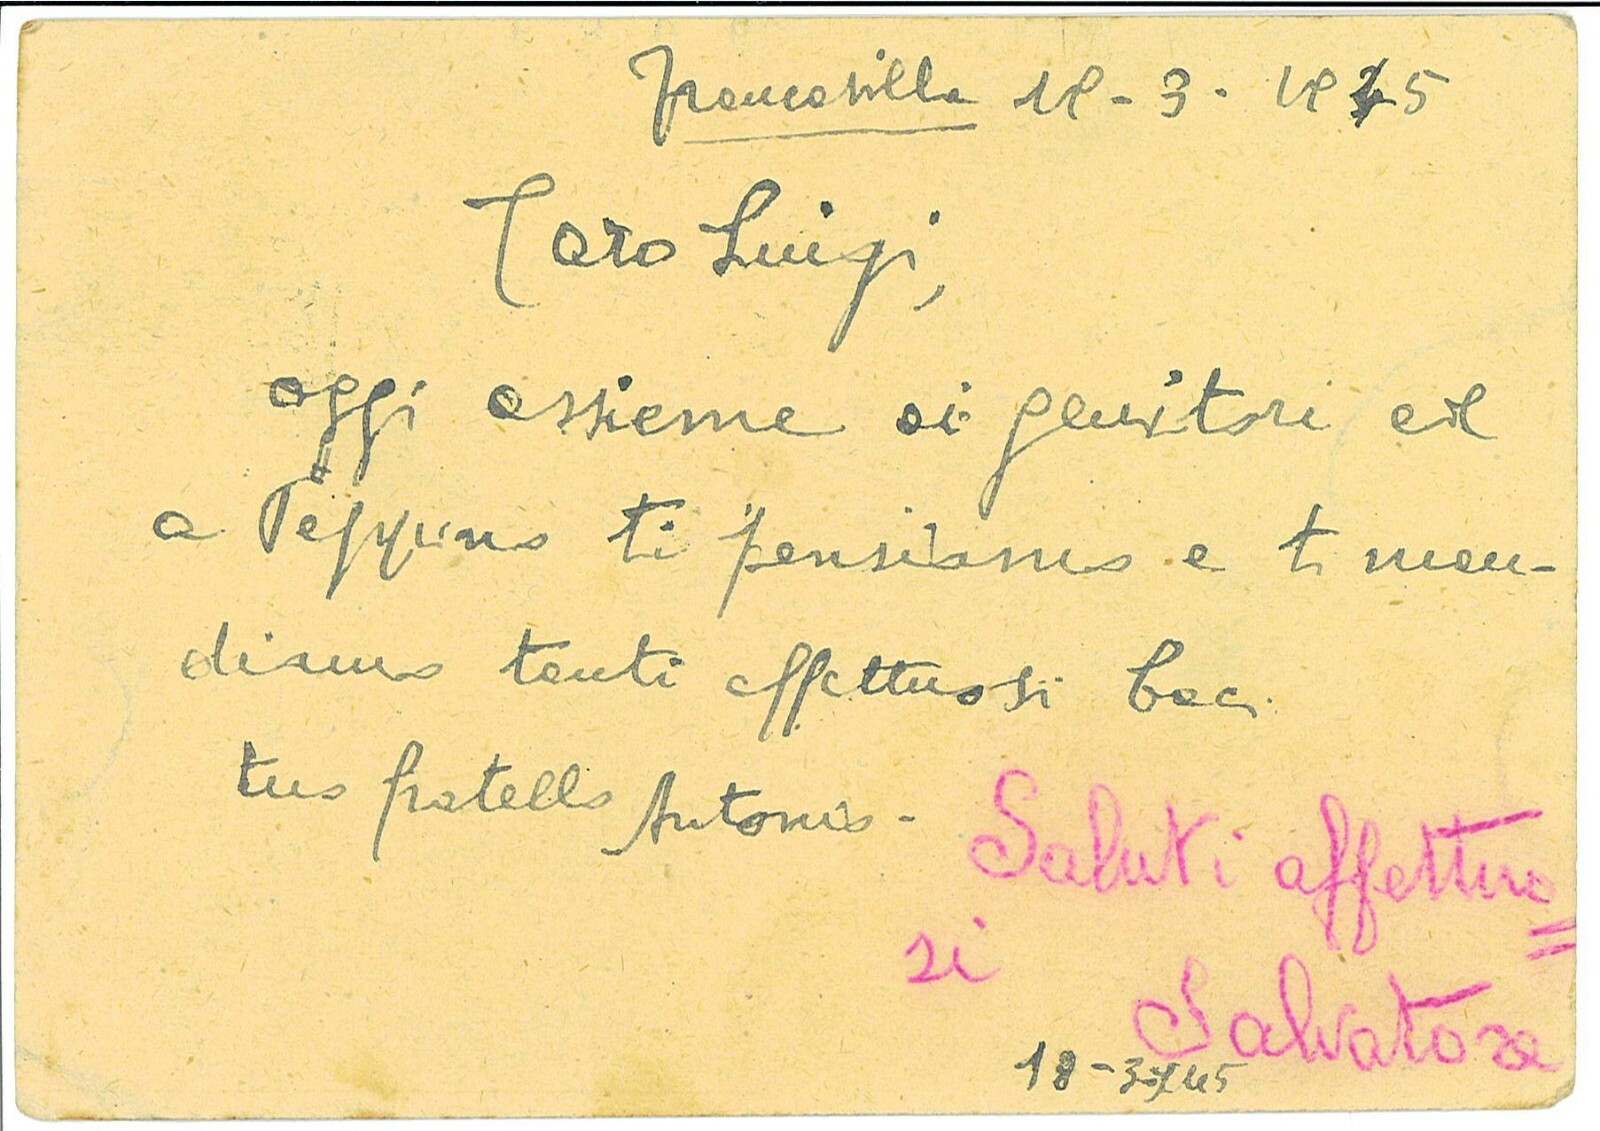 Francavilla 18-3-1945
Caro Luigi,
oggi assieme ai genitori ed
a Peppino ti pensiamo e ti man-
diamo tanti affettuosi baci.
tuo fratello Antonio-
Saluti affettuo=
si
Salvatore
18-3-1945